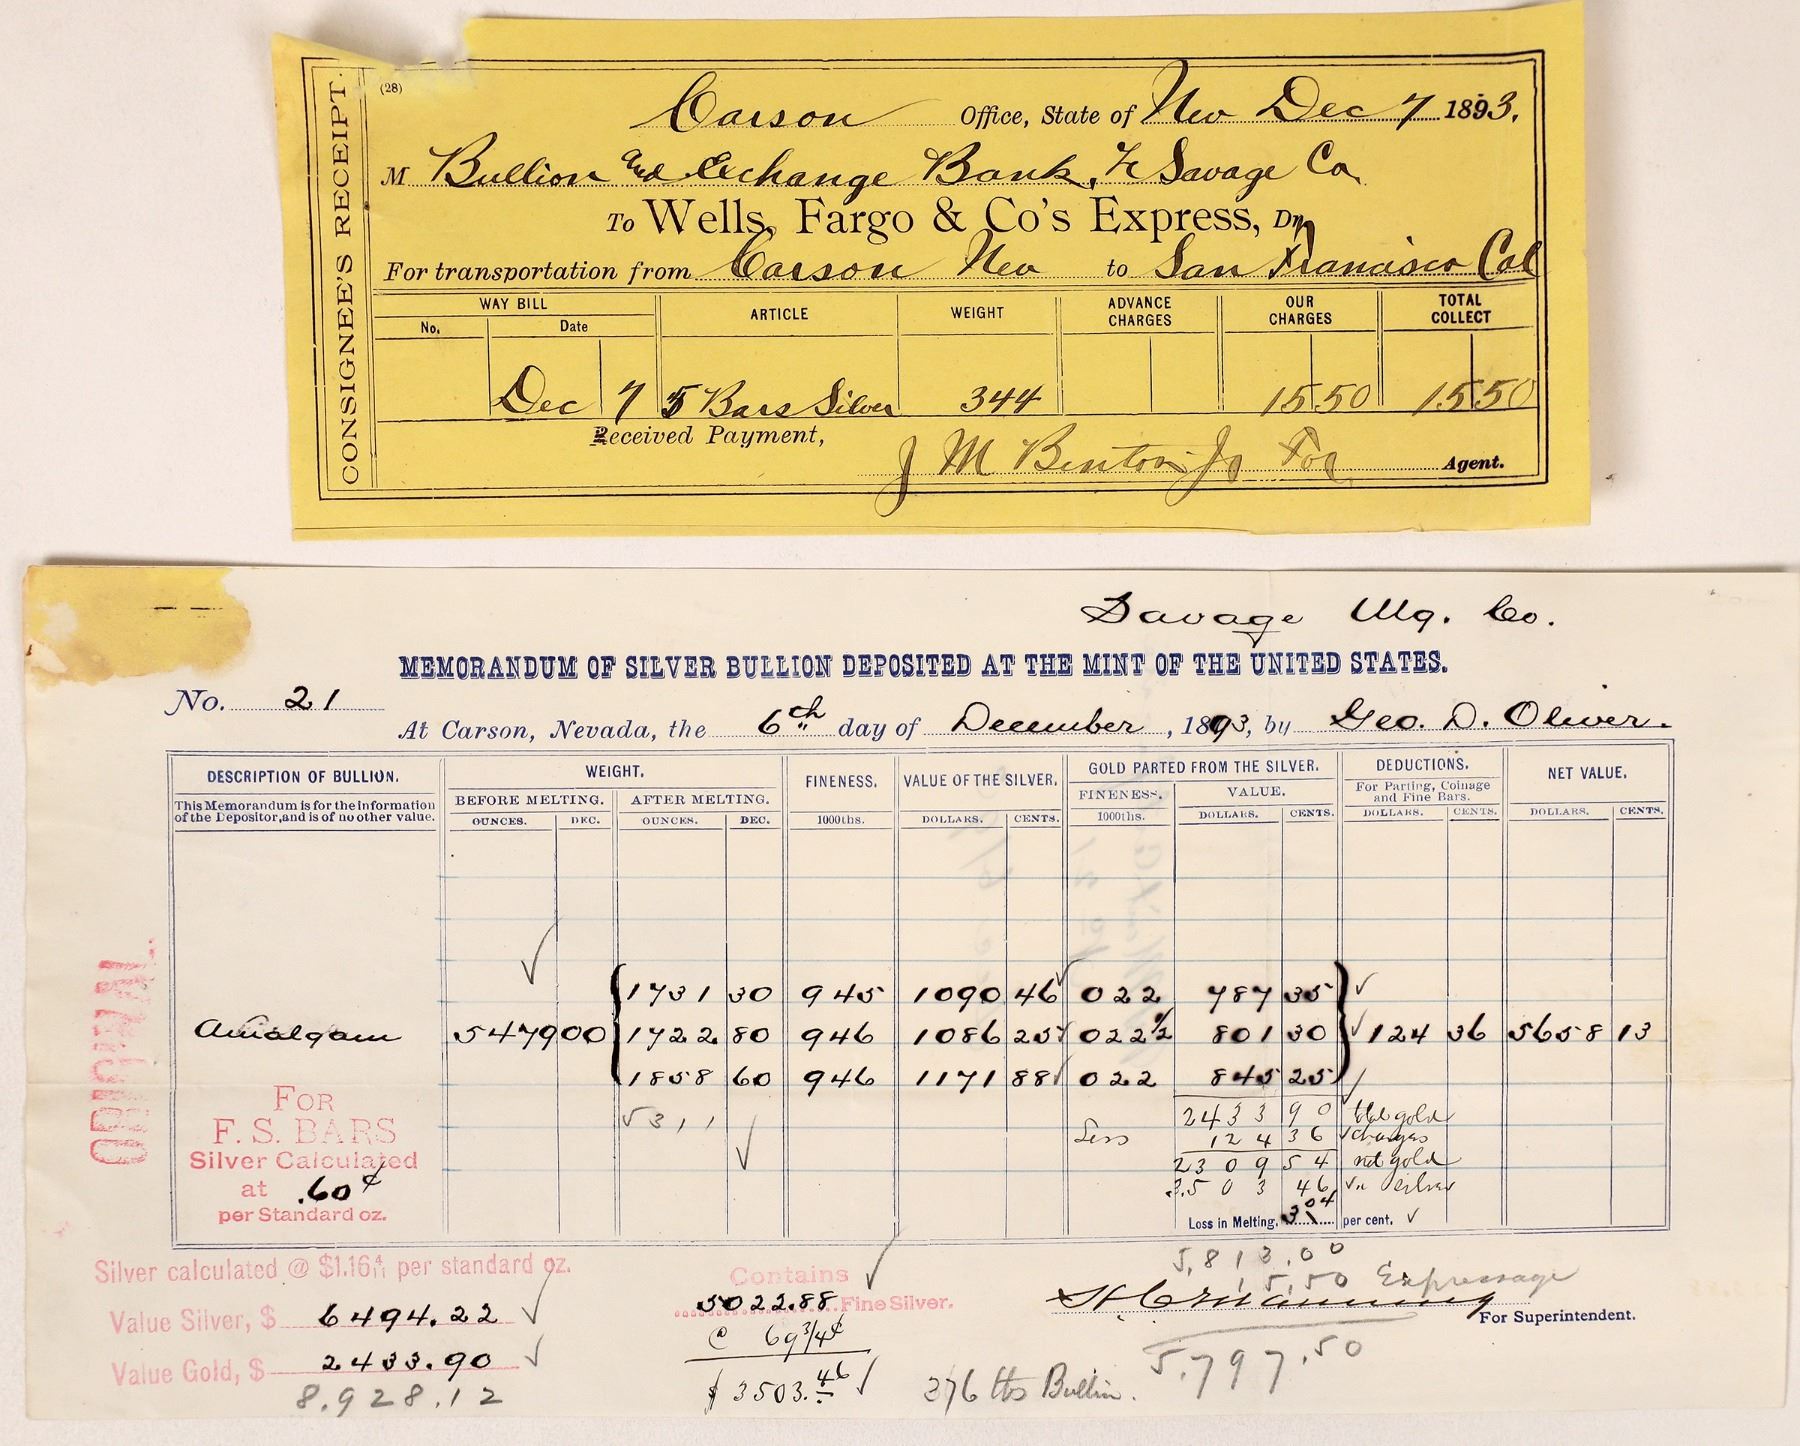 CONSIGNEE'S RECEIPT.
(28)
Carson Office, State of Nev Dec 7 1893.
M Bullion and Exchange Bank, Fr Savage Co.
To Wells, Fargo & Co's Express, Dr,
For transportation from Carson Nev to San Francisco Cal
WAY BILL ARTICLE WEIGHT ADVANCE CHARGES OUR CHARGES TOTAL COLLECT
No. Date
Dec 7 5 Bars Silver 344 15 50 15 50
Received Payment,
J M Benton Jr For Agent.
Savage Mg. Co.
MEMORANDUM OF SILVER BULLION DEPOSITED AT THE MINT OF THE UNITED STATES.
No. 21
At Carson, Nevada, the 6th day of December, 1893, by Geo. D. Oliver.
DESCRIPTION OF BULLION. WEIGHT. FINENESS. VALUE OF THE SILVER. GOLD PARTED FROM THE SILVER. DEDUCTIONS. NET VALUE.
This Memorandum is for the information of the Depositor, and is of no other value. BEFORE MELTING. AFTER MELTING. FINENESS. VALUE. For Parting, Coinage and Fine Bars.
OUNCES. DEC. OUNCES. DEC. 1000ths. DOLLARS. CENTS. 1000ths. DOLLARS. CENTS. DOLLARS. CENTS. DOLLARS. CENTS.
1731 30 945 1090 46 022 787 35
Amalgam 5479 00 1722 80 946 1086 25 022 1/2 801 30 124 36 5658 13
1858 60 946 1171 88 022 845 25
5311
2433 90 total gold
Less 124 36 charges
2309 54 net gold
3503 46 " silver
Loss in Melting, 3 04 per cent.
ORIGINAL.
FOR
F. S. BARS
Silver Calculated
at .60¢
per Standard oz.
Silver calculated @ $1.16 4/11 per standard oz.
Value Silver, $ 6494.22
Value Gold, $ 2433.90
8.928.12
Contains
5022.88 Fine Silver.
@ 69 3/4¢
$ 3503.46
376 lbs Bullion.
5,813.00
15,50 Expressage
For Superintendent.
5,797.50